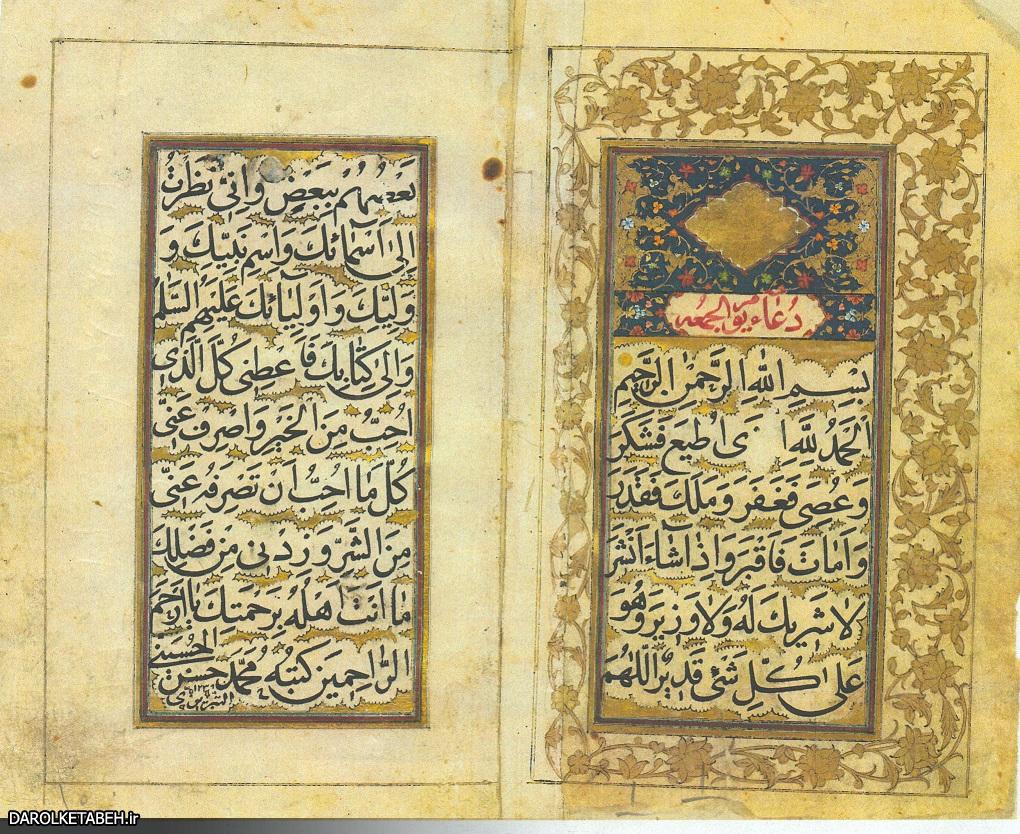 دُعَاء يوم الجمعه
بِسْمِ اللّٰهِ الرَّحْمٰنِ الرَّحِيمِ
اَلْحَمْدُ لِلّٰهِ ا ى اُطيعَ فَشَكَرَ
وَعُصِىَ فَغَفَرَ وَمَلَكَ فَقَدَرَ
وَاَمَاتَ فَاَقْبَرَ وَاِذَاشَاءَ اَنْشَرَ
لَا شَرِيكَ لَهُ وَلَا وَزِيرَ وَهُوَ
عَلىٰ كُلِّ شَىْءٍ قَدِيرٌ اَللّٰهُمَّ
بَعْضِهِمْ بِبَعْضٍ وَاِنّى نَظَرْتُ
اِلىٰ اَسْمَائِكَ وَاسْمِ نَبِيِّكَ وَ
وَلِيِّكَ وَاَوْلِيَائِكَ عَلَيْهِمُ السَّلٰمُ
وَاِلىٰ كِتَابِكَ فَاَعْطِنى كُلَّ الَّذى
اُحِبُّ مِنَ الْخَيْرِ وَاصْرِفْ عَنّى
كُلَّ مَا اُحِبُّ اَنْ تَصْرِفَهُ عَنّى
مِنَ الشَّرِّ وَزِدْنى مِنْ فَضْلِكَ
مَا اَنْتَ اَهْلُهُ بِرَحْمَتِكَ يَا اَرْحَمَ
الرَّاحِمِينَ كَتَبَهُ مُحَمَّد حسن الحُسيني
DAROLKETABEH.ir